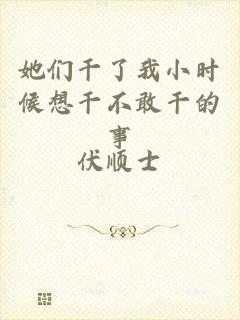 她们干了我小时
候想干不敢干的
事
伏顺士